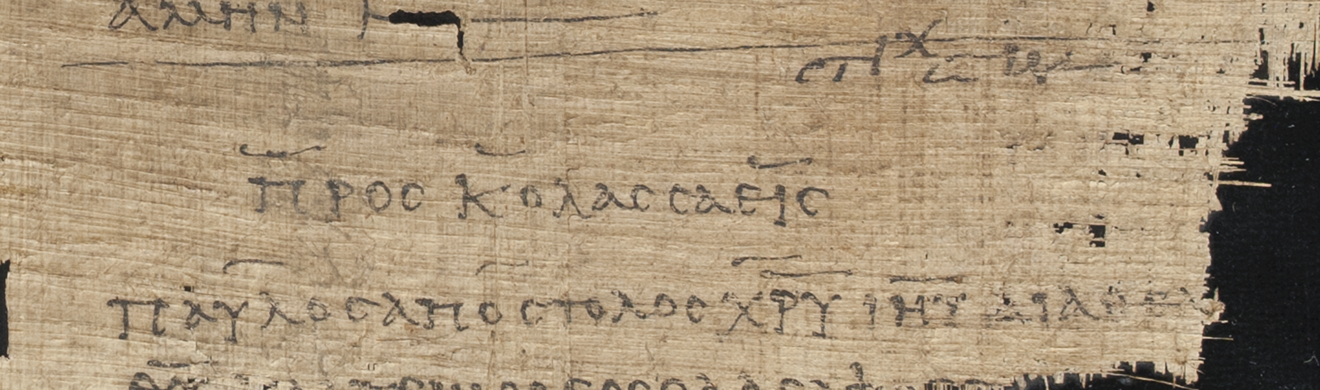 αμην
στιχ
προς κολασσαεις
παυλος αποστολος χρυ ιηυ δια θελ